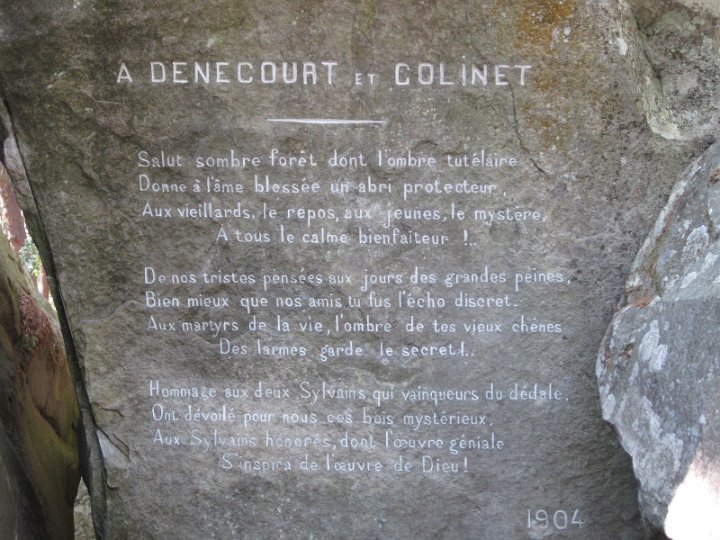 A DENECOURT ET COLINET
Salut sombre forêt dont l'ombre tutélaire
Donne à l'âme blessée un abri protecteur,
Aux vieillards, le repos, aux jeunes, le mystère,
A tous le calme bienfaiteur !..
De nos tristes pensées aux jours des grandes peines,
Bien mieux que nos amis, tu fus l'écho discret.
Aux martyrs de la vie, l'ombre de tes vieux chênes
Des larmes garde le secret !..
Hommage aux deux Sylvains, qui vainqueurs du dédale,
Ont dévoilé pour nous ces bois mystérieux,
Aux Sylvains honorés, dont l'œuvre géniale
S'inspira de l'œuvre de Dieu !
1904